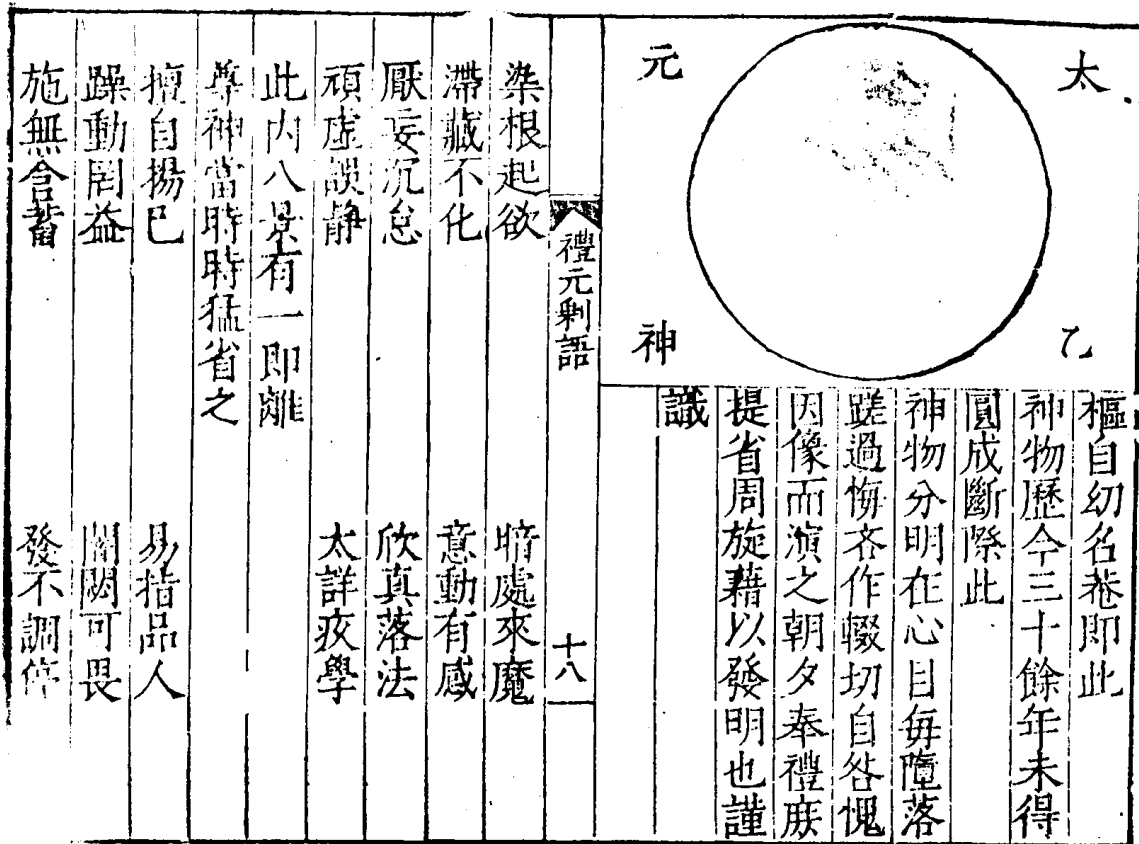 太乙
元神
樞自幼名巷即此
神物歷今三十餘年未得
圓成斷際此
神物分明在心目每墮落
蹉過悔吝作輟切自咎愧
因像而演之朝夕奉禮庻
提省周旋藉以發明也謹
識
禮元剩語
十八
染根起欲 暗處來魔
滯藏不化 意動有感
厭妄沉怠 欣真落法
頑虛誤静 太詳疚學
此内八景有一即離
尊神當時時猛省之
擅自揚巳 易指品人
躁動罔益 闇閉可畏
施無含蓄 發不調停